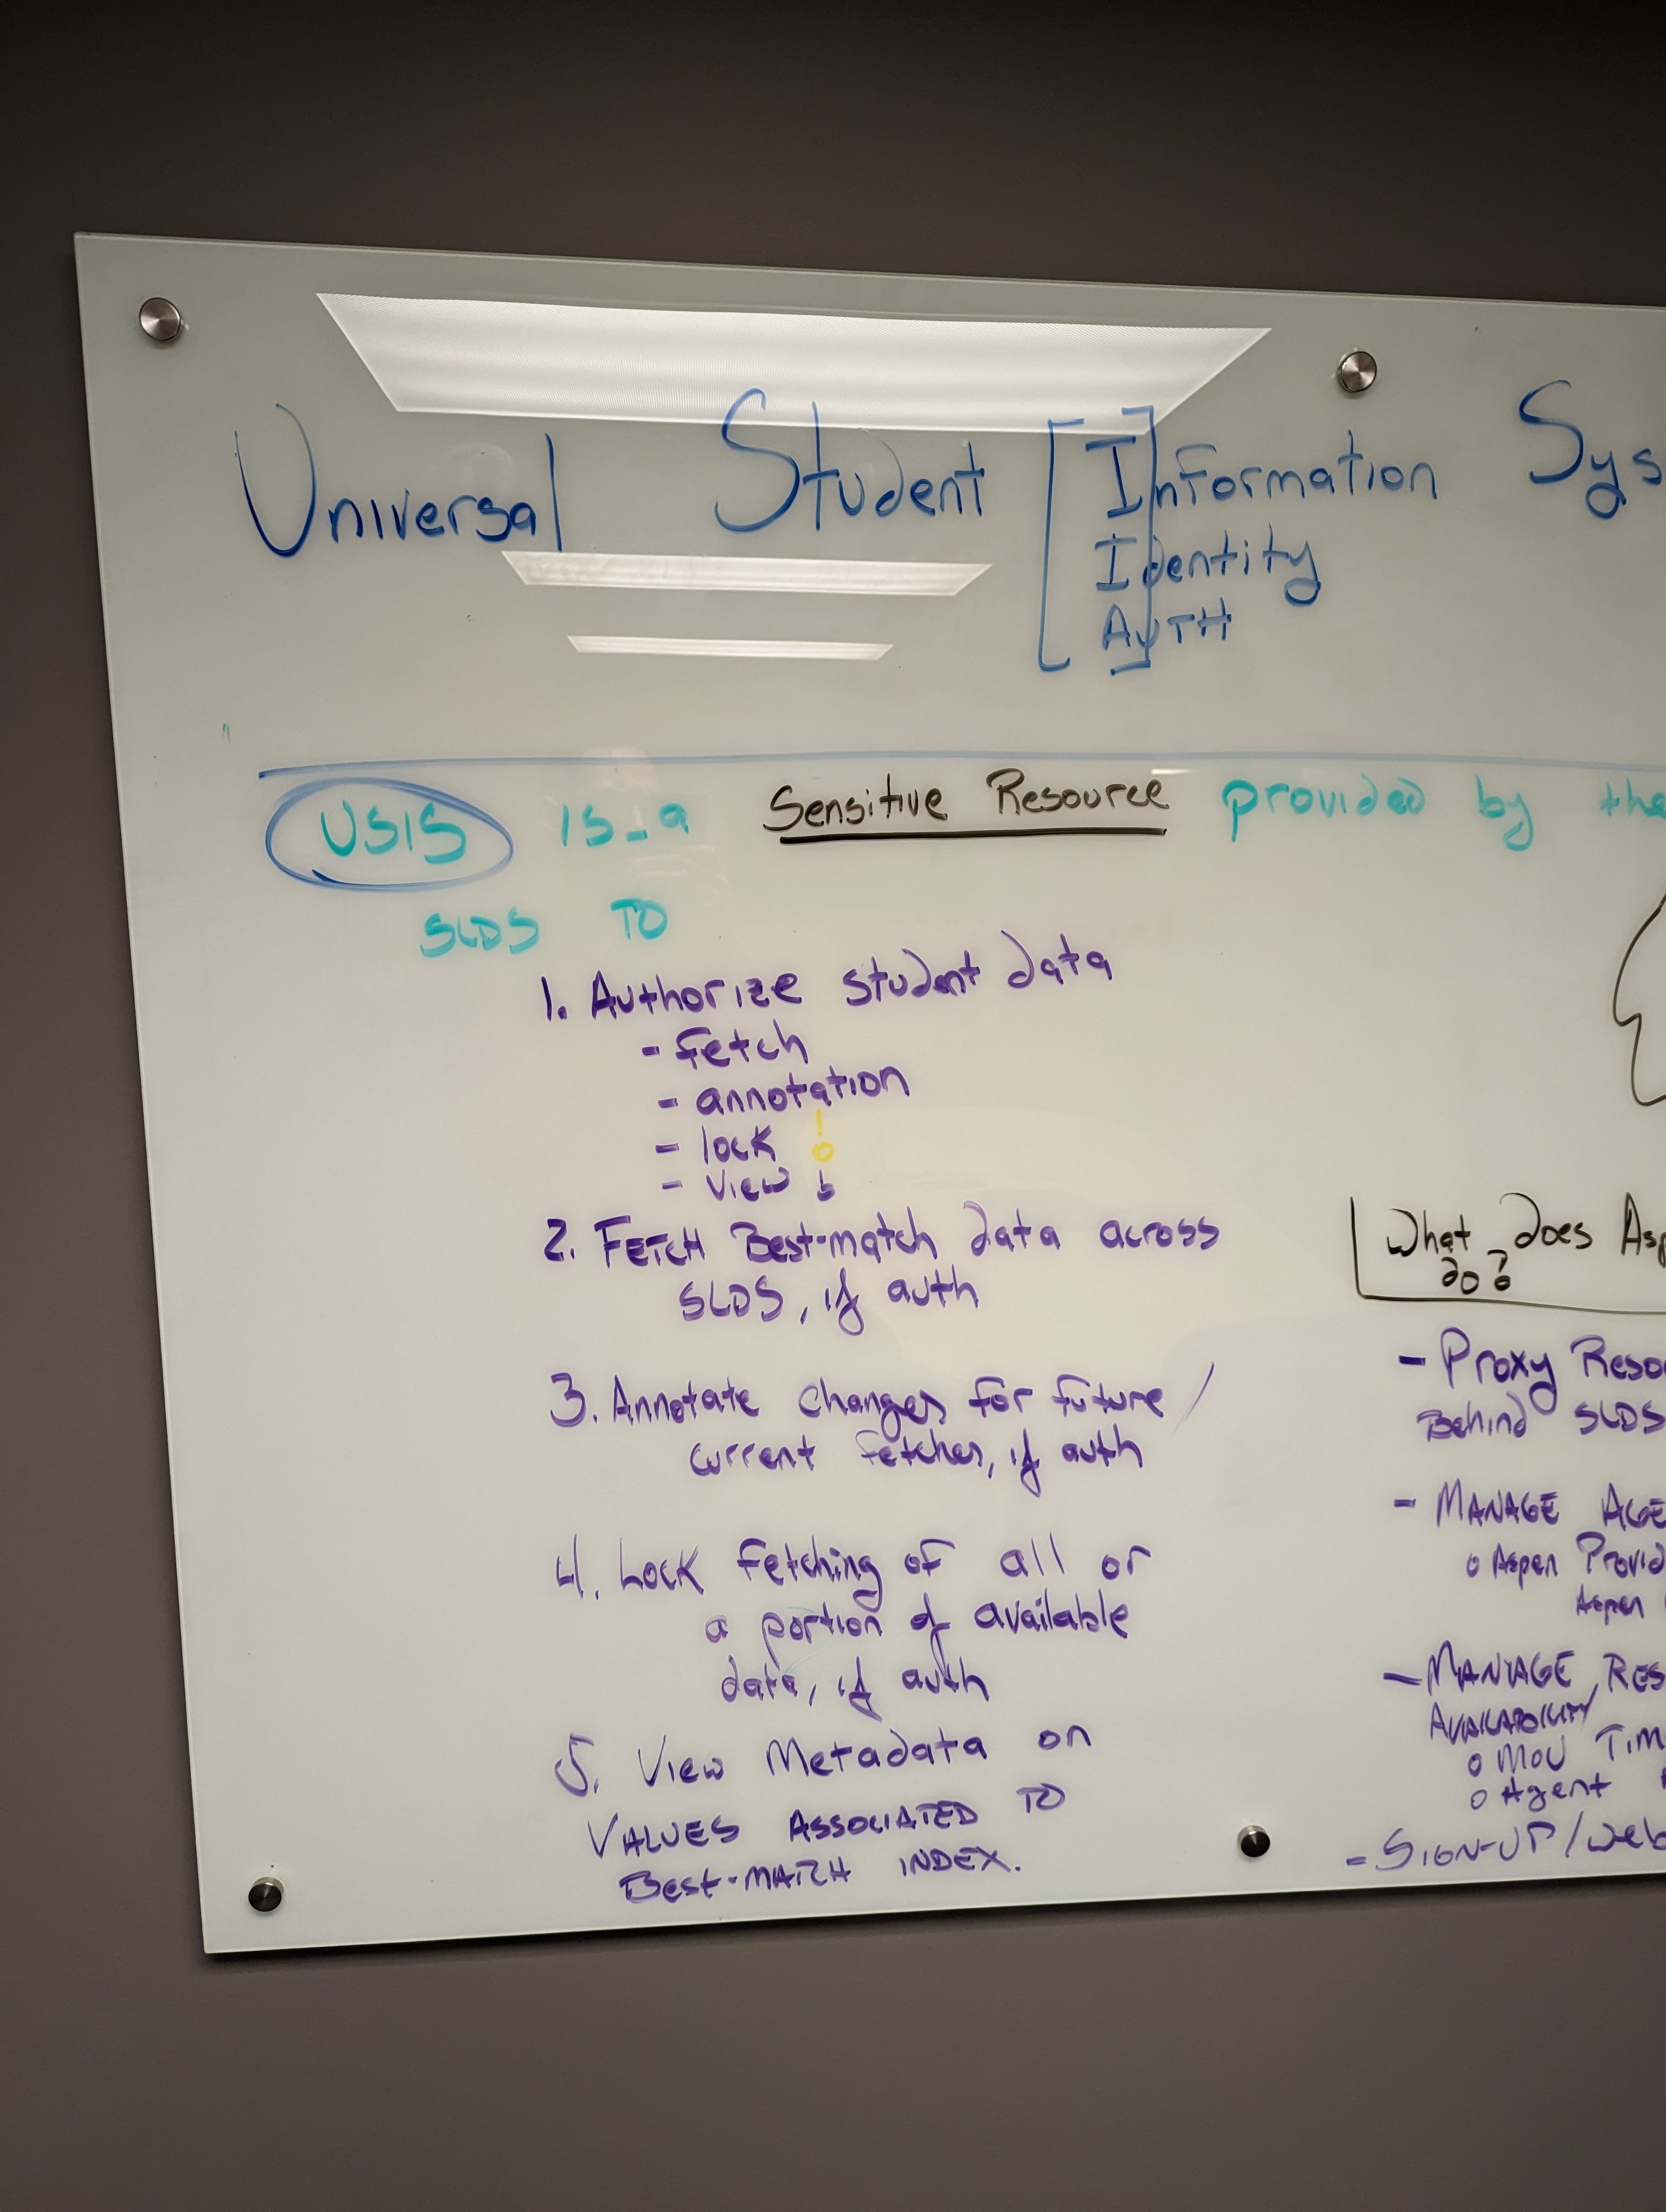 Universal Student [I]nformation Sys
Identity
AUTH
USIS IS_a Sensitive Resource provided by the
SLDS TO
1. Authorize student data
- fetch
- annotation
- lock !
- view
2. FETCH Best-match data across
SLDS, if auth
3. Annotate changes for future/
current fetches, if auth
4. Lock fetching of all or
a portion of available
data, if auth
5. View Metadata on
VALUES ASSOCIATED TO
Best-MATCH INDEX.
What does Asp
do?
- Proxy Reso
Behind SLDS
- MANAGE AGE
o Aspen Provid
Aspen
- MANAGE RES
AVAILABILITY
o MOU TIM
o Agent
- SIGN-UP/Web